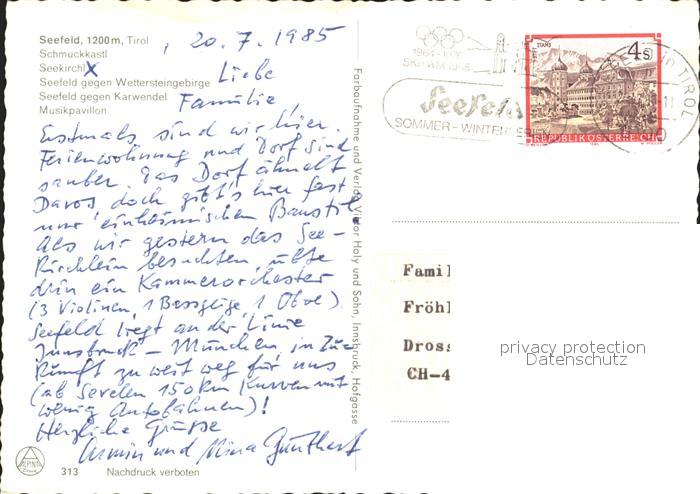 Seefeld, 1200 m, Tirol
Schmuckkastl
Seekirchl X
Seefeld gegen Wettersteingebirge
Seefeld gegen Karwendel
Musikpavillon
, 20. 7. 1985
Liebe
Familie,
Erstmals sind wir hier.
Ferienwohnung und Dorf sind
sauber. Das Dorf ähnelt
Davos doch gibt's hier fast
nur einheimischen Baustil.
Als wir gestern das See-
Kirchlein besuchten, übte
drin ein Kammerorchester
(3 Violinen, 1 Bassgeige, 1 Oboe)
Seefeld liegt an der Linie
Innsbruck – München, in Zu-
kunft zu weit weg für uns
(ab Sevelen 150 km Kurven mit
wenig Autobahnen)!
Herzliche Grüsse
Armin und Nina Günthert
ALPINA
DRUCK
313 Nachdruck verboten
Farbaufnahme und Verlag Victor Holy und Sohn, Innsbruck, Hofgasse
SKI WM 1985
Seefeld
SOMMER - WINTER
STIFT STAMS
4 S
REPUBLIK ÖSTERREICH
TIROL
Famil
Fröhl
Dross
CH-4
privacy protection
Datenschutz